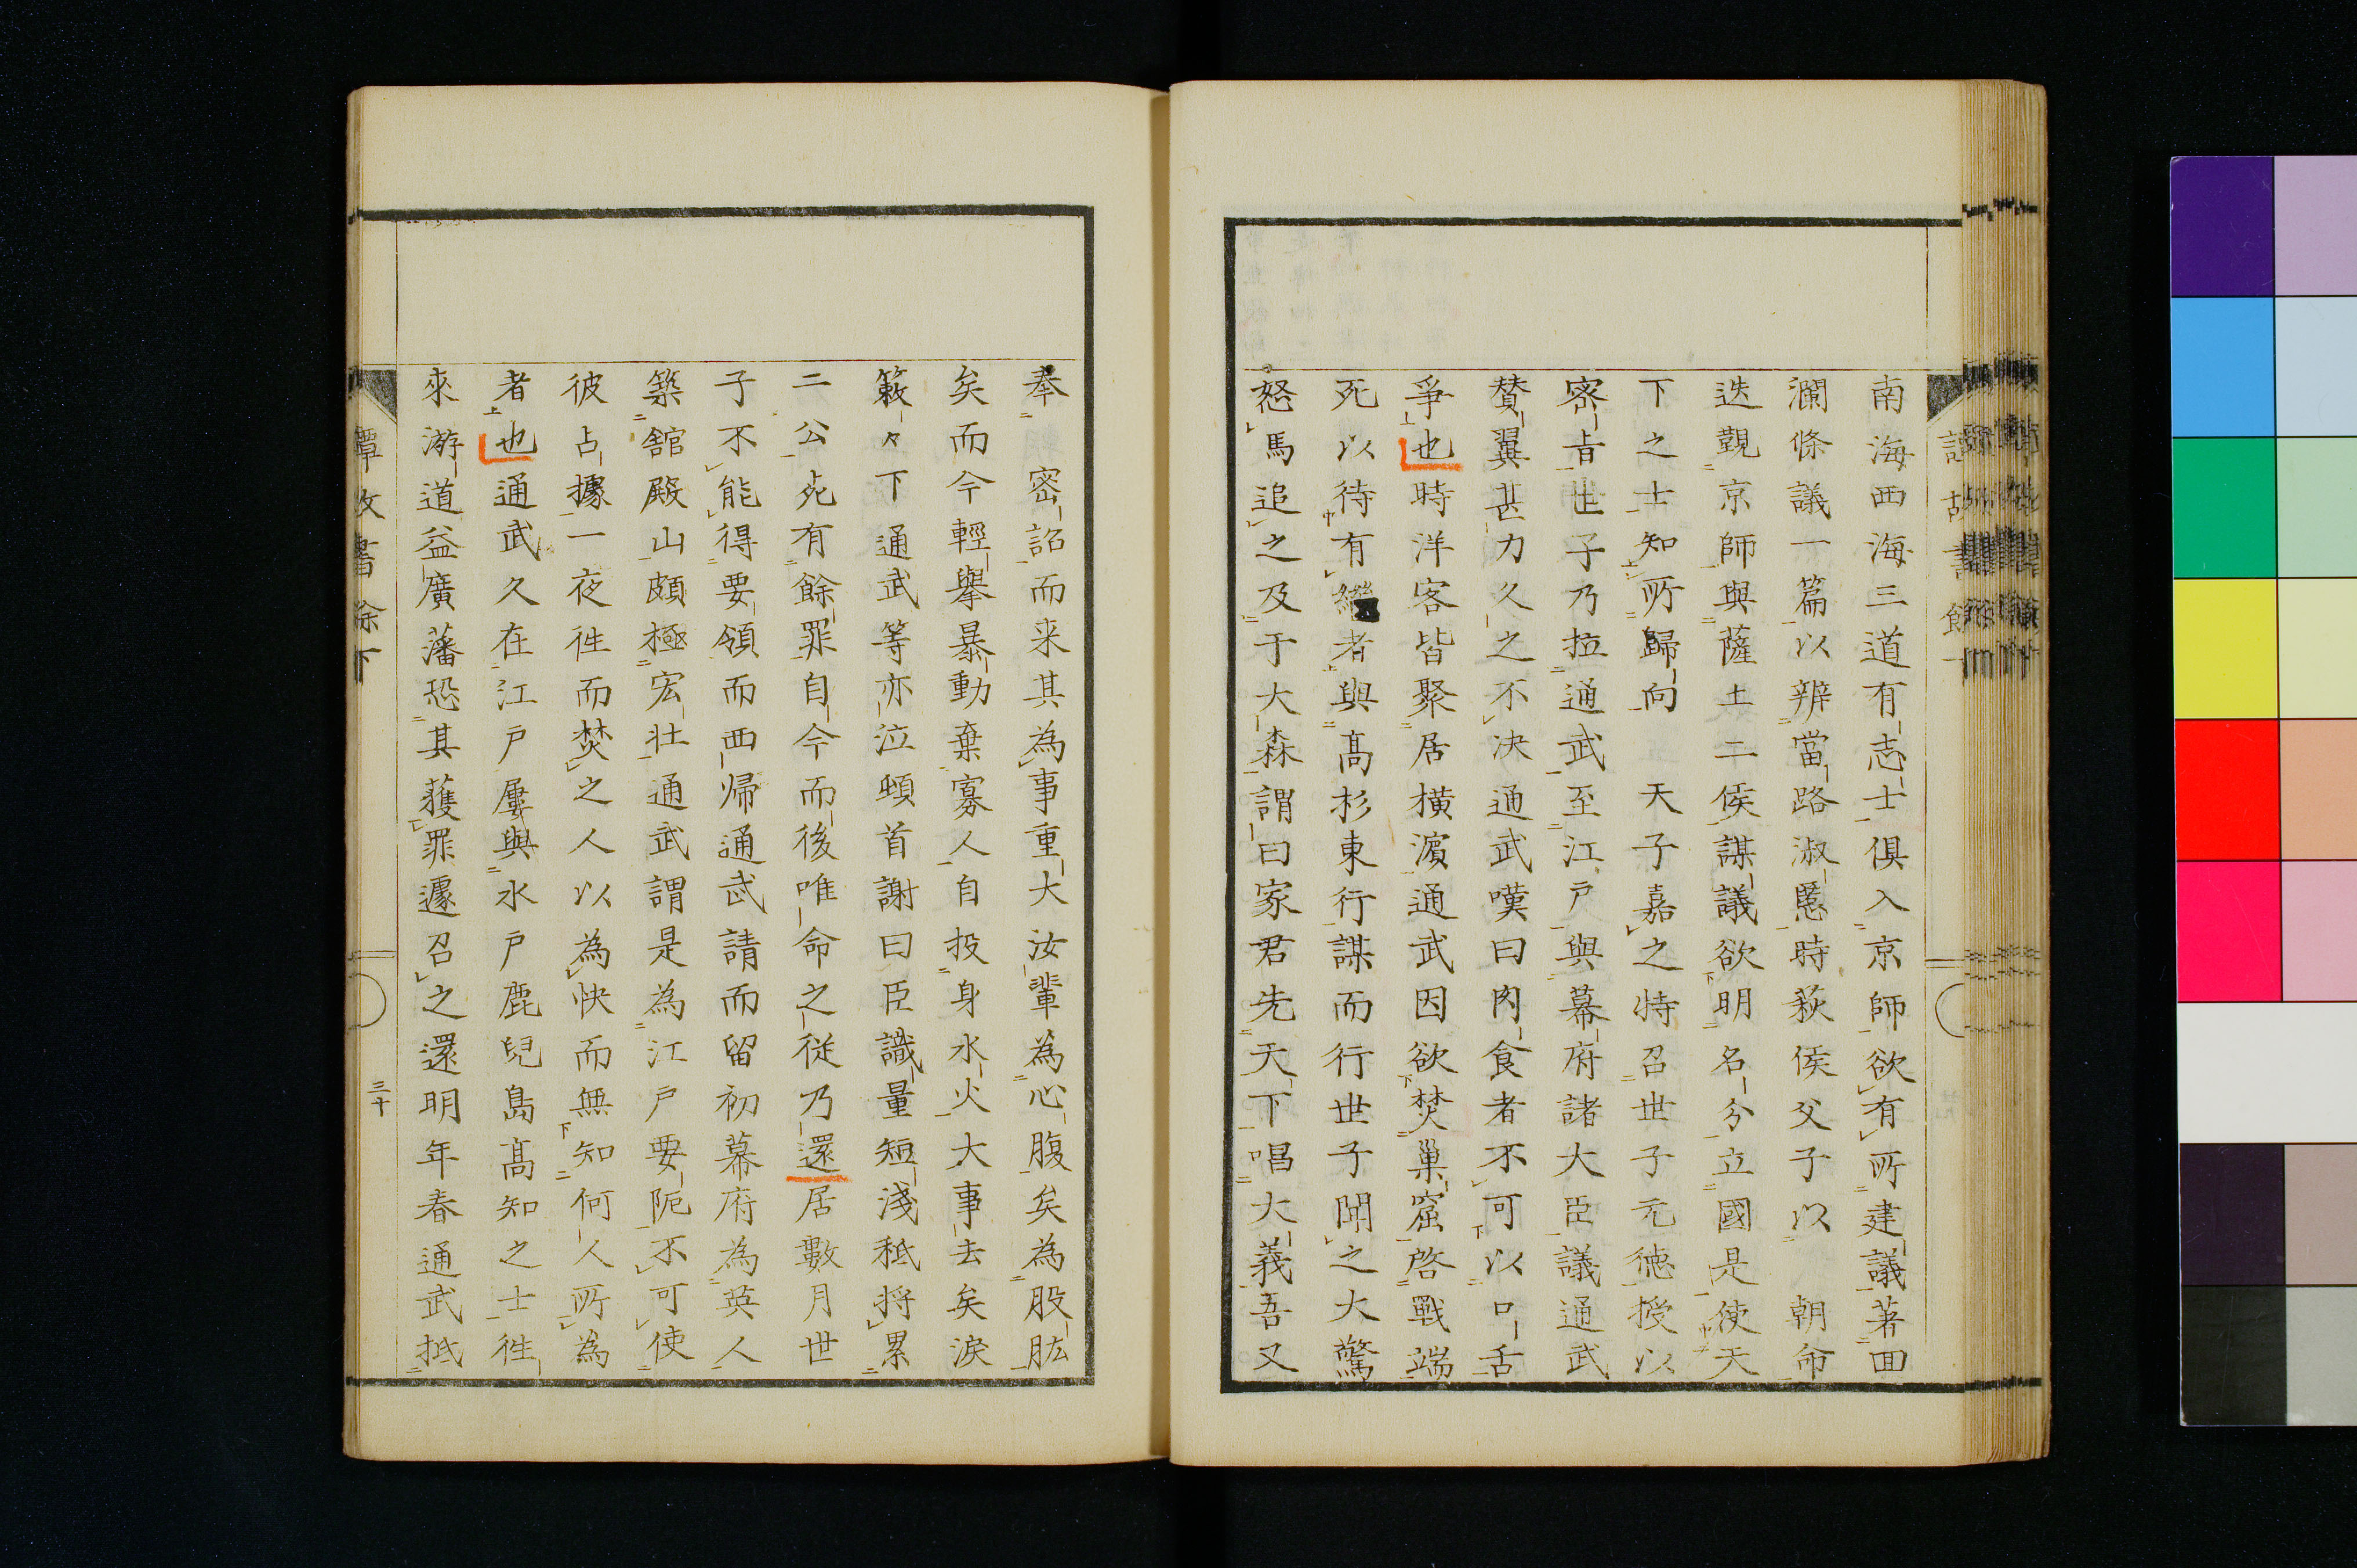 南海西海三道有志士俱入京師欲有所建議著回
瀾條議一篇以辨當路淑慝時萩侯父子以　朝命
迭覲京師與薩土二侯謀議欲明名分立國是使天
下之士知所歸向　天子嘉之特召世子元徳授以
密旨世子乃拉通武至江戸與幕府諸大臣議通武
賛翼甚力久之不决通武嘆曰肉食者不可以口舌
爭也時洋客皆聚居横濵通武因欲焚巢窟啓戰端
死以待有繼者與髙杉東行謀而行世子聞之大驚
怒馬追之及于大森謂曰家君先天下唱大義吾又
奉　密詔而来其為事重大汝輩為心腹矣為股肱
矣而今輕擧暴動棄寡人自投身水火大事去矣涙
簌々下通武等亦泣頓首謝曰臣識量短淺秪将累
二公死有餘罪自今而後唯命之従乃還居數月世
子不能得要領而西帰通武請而留初幕府為英人
築舘殿山頗極宏壮通武謂是為江戸要阨不可使
彼占據一夜徃而焚之人以為快而無知何人所為
者也通武久在江戸屢與水戸鹿兒島髙知之士徃
來游道益廣藩恐其獲罪遽召之還明年春通武抵
三十